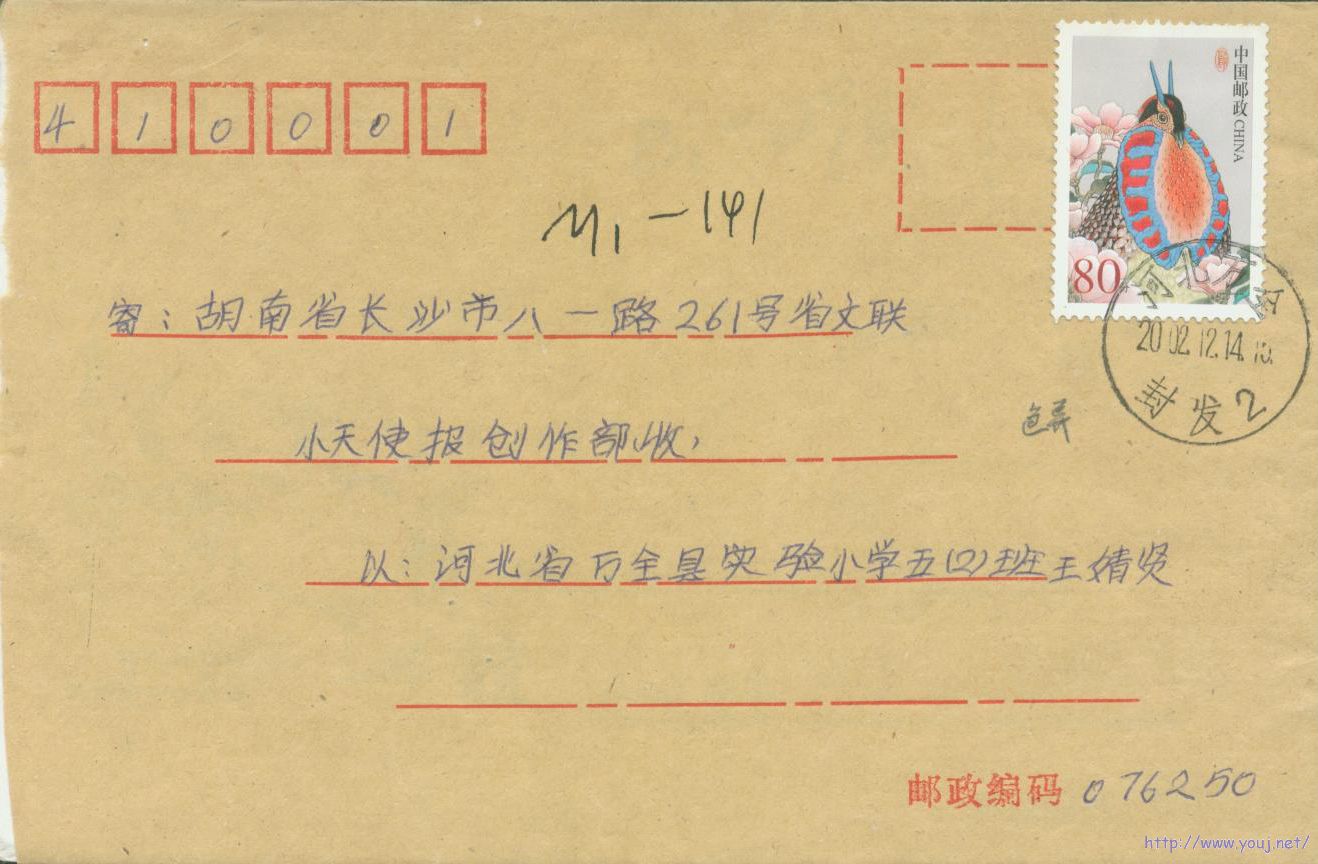 410001
中国邮政 CHINA
80
M1-141
寄：胡南省长沙市八一路261号省文联
小天使报创作部收，
以：河北省万全县实验小学五(2)班王婧贤
河北万全
2002.12.14.
封发2
邮政编码 076250
http://www.youj.net/